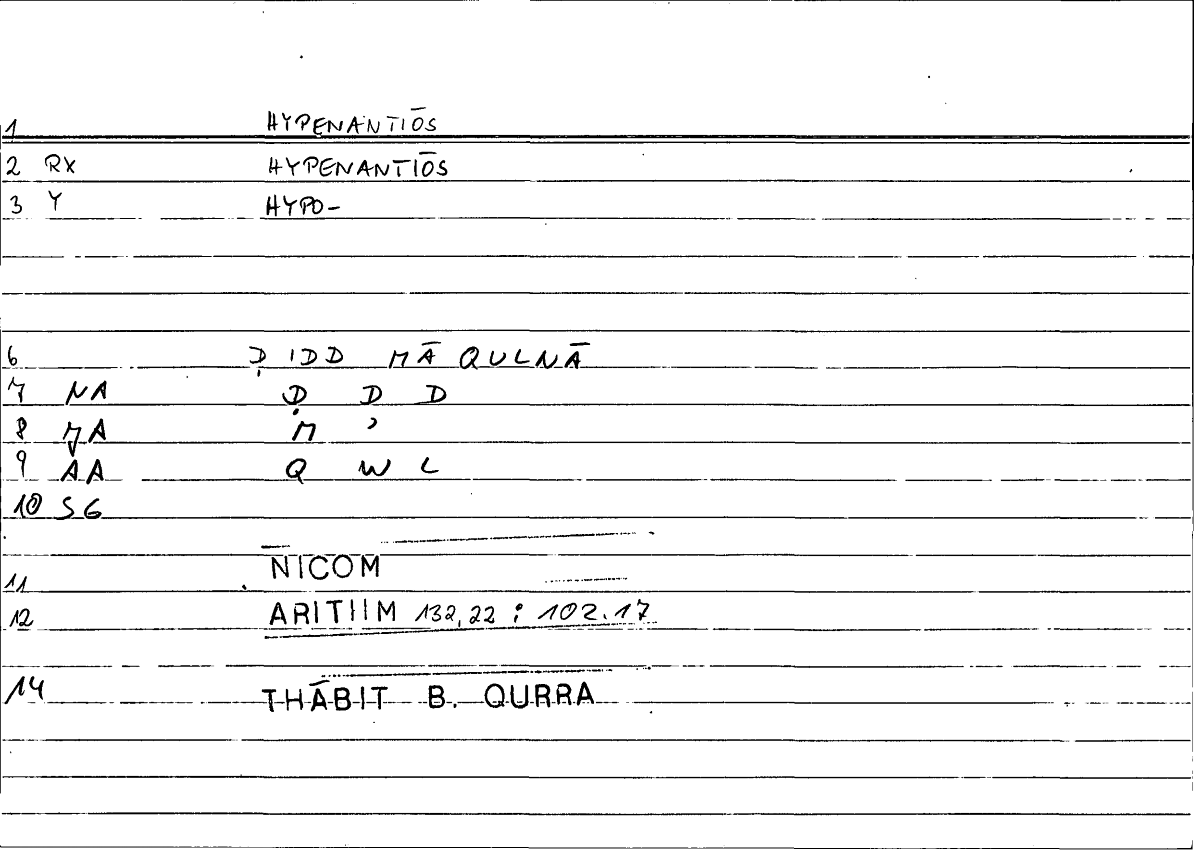 1 HYPENANTIŌS
2 RX HYPENANTIŌS
3 Y HYPO-
6 ḌIDD MĀ QULNĀ
7 NA Ḍ D D
8 MA M ʾ
9 AA Q W L
10 SG
11 NICOM
12 ARITIIM 132,22 : 102.17
14 THĀBIT B. QURRA